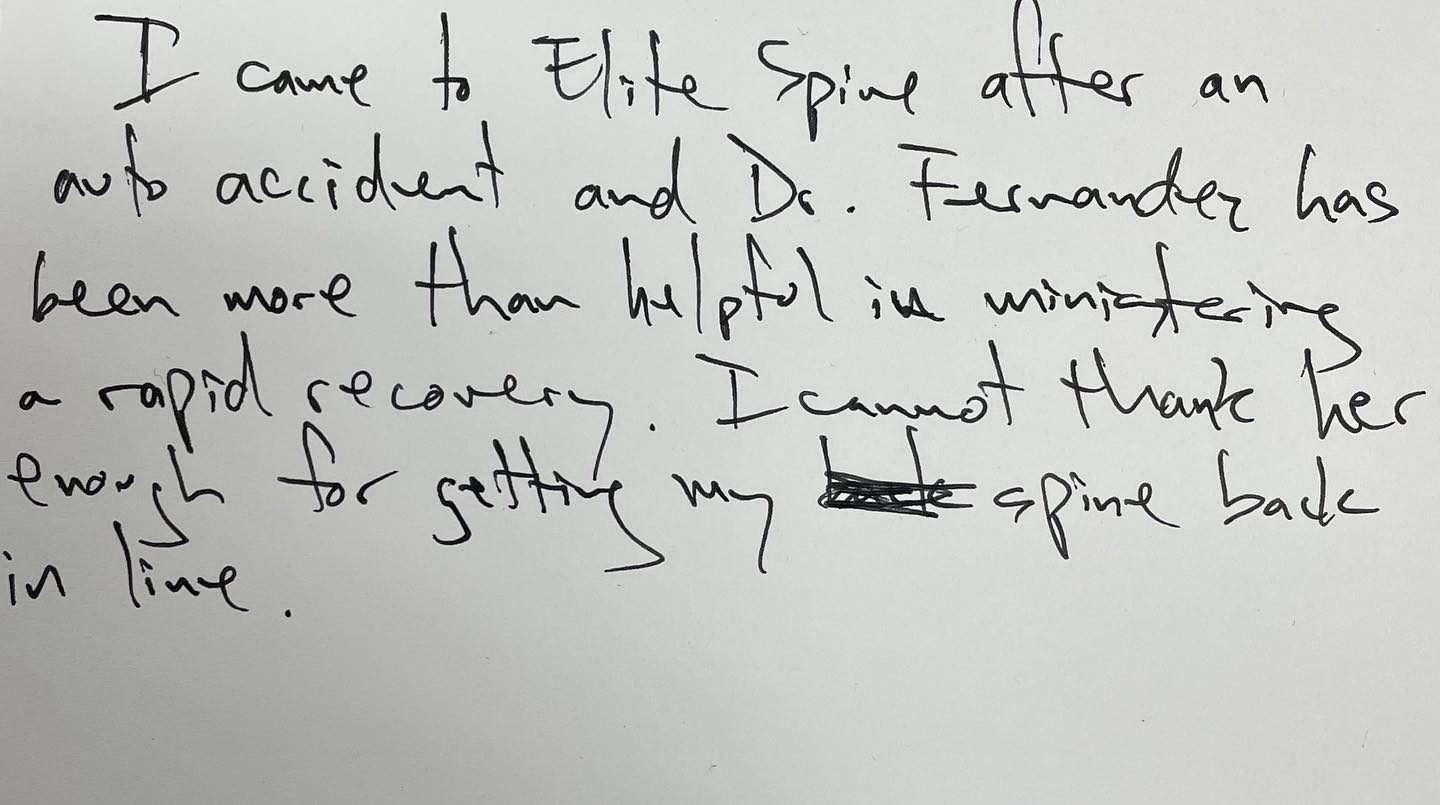 I came to Elite Spine after an
auto accident and Dr. Fernandez has
been more than helpful in ministering
a rapid recovery. I cannot thank her
enough for getting my spine back
in line.